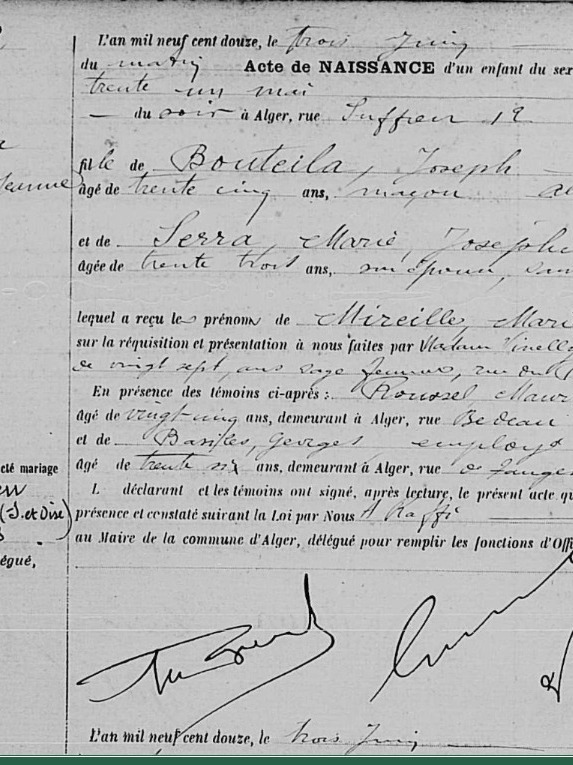 L'an mil neuf cent douze, le trois Juin
du matin Acte de NAISSANCE d'un enfant du sex
trente un mai
du soir à Alger, rue Suffren 12
fille de Bouteila, Joseph
Jeanne
âgé de trente cinq ans, maçon
et de Serra, Marie, Joséphi
âgée de trente trois ans, son épouse, san
lequel a reçu les prénoms de Mireille, Mari
sur la réquisition et présentation à nous faites par Madame
de vingt sept, ans sage femme, rue
En présence des témoins ci-après : Roussel Maur
âgé de vingt cinq ans, demeurant à Alger, rue Bedeau
et de Georges employé
cté mariage
âgé de trente six ans, demeurant à Alger, rue
L déclarant et les témoins ont signé, après lecture, le présent acte qu
(S. et Oise)
présence et constaté suivant la Loi par Nous
au Maire de la commune d'Alger, délégué pour remplir les fonctions d'Offi
égué,
L'an mil neuf cent douze, le trois Juin